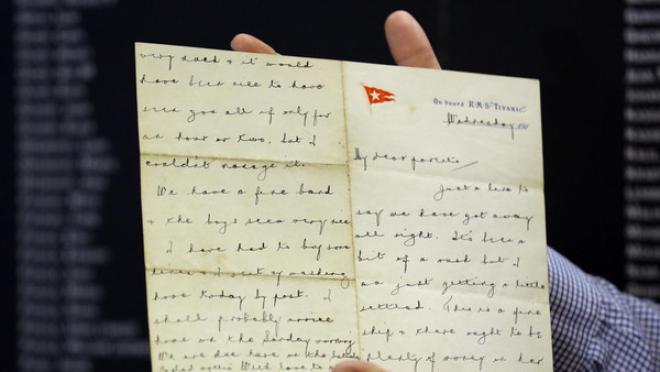 very much & it would
have been nice to have
seen you all if only for
an hour or two, but I
couldn't manage it.
We have a fine band
& the boys seem very nice
I have had to buy some
linen & I sent my washing
home today by post. I
shall probably arrive
home on the Sunday morning
We are due here on the
With love to
On board R.M.S. "TITANIC"
Wednesday 191
My dear parents,
Just a line to
say we have got away
all right. It's been a
bit of a rush but I
am just getting a little
settled. This is a fine
ship & there ought to be
plenty of money in her